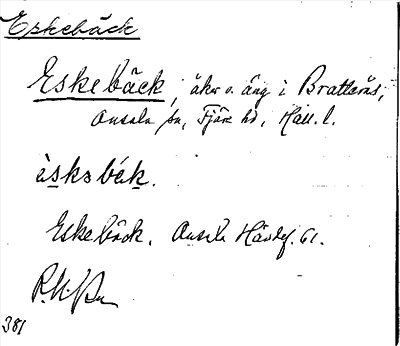 Eskebäck
Eskebäck, åker o. äng i Bratterås,
Onsala sn, Fjäre hd, Hall. l.
èsksbék.
Eskebäck. Onsala Hävdef. 61.
381